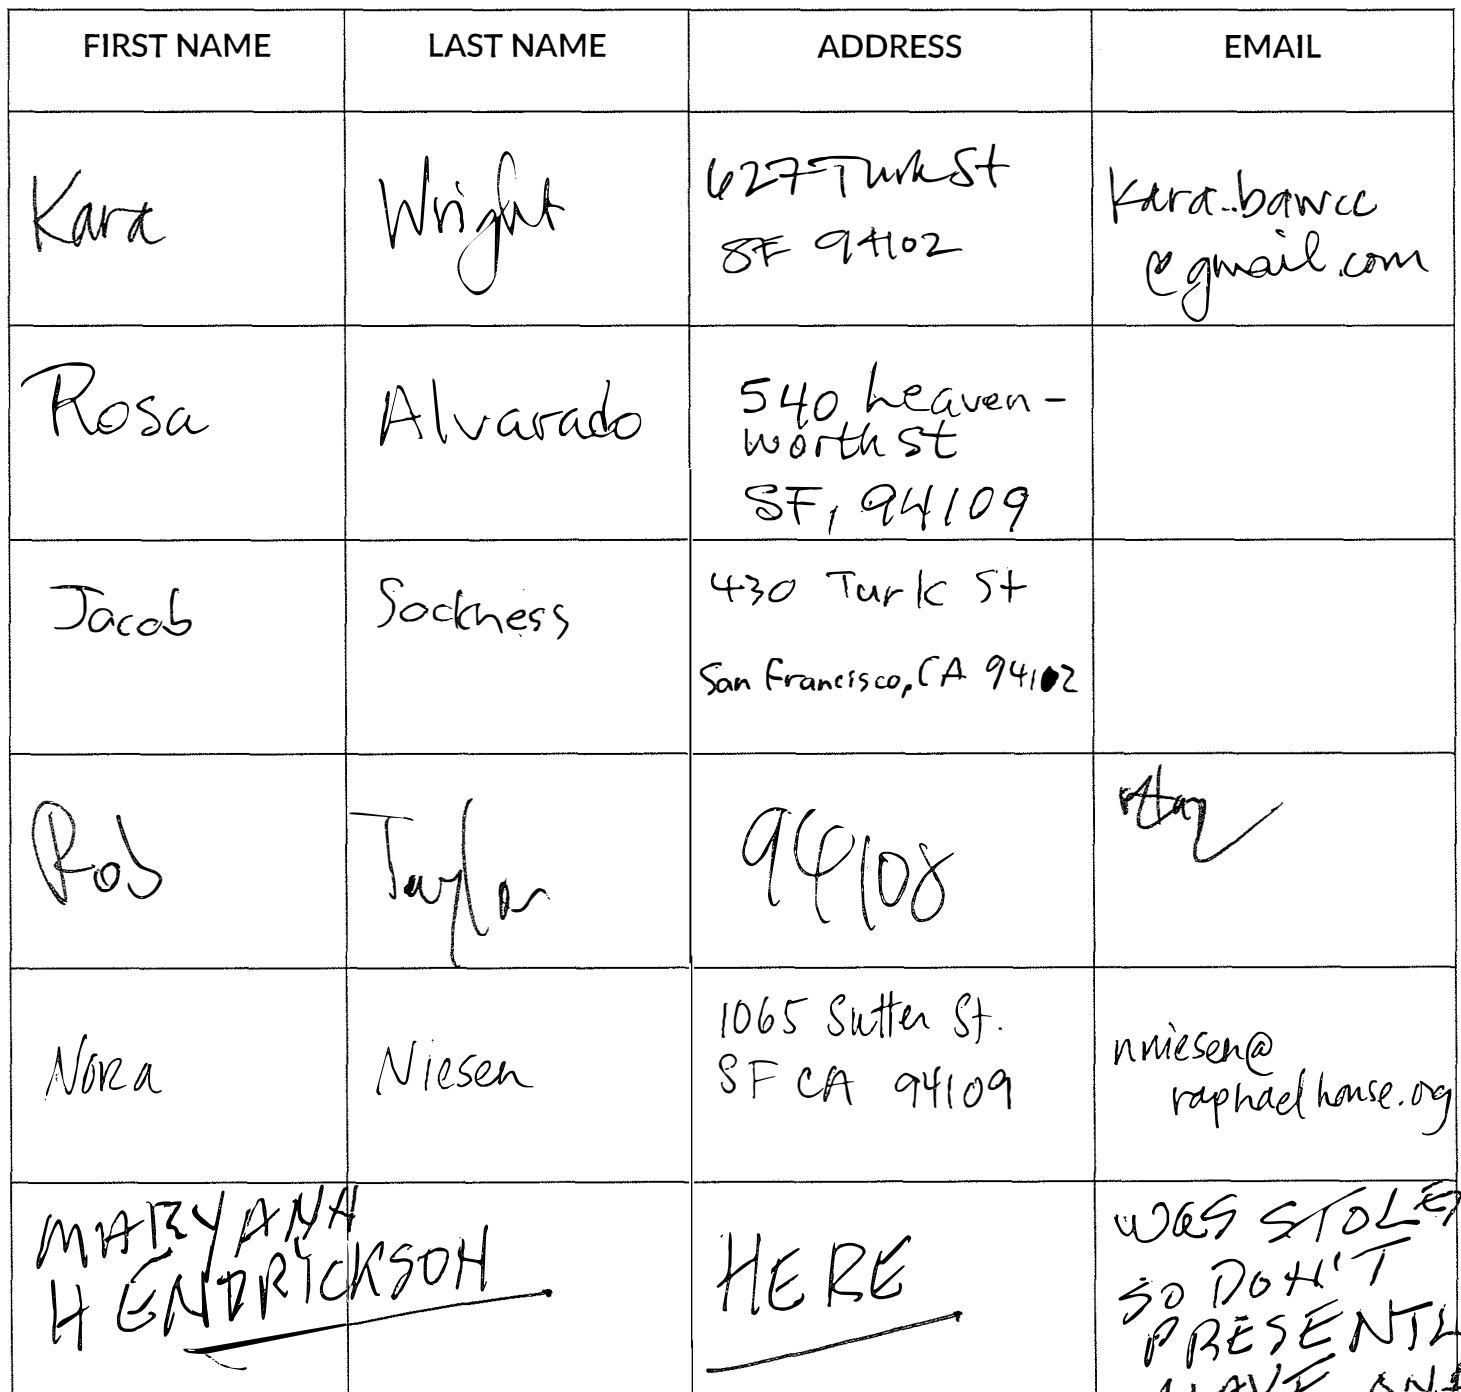 FIRST NAME
LAST NAME
ADDRESS
EMAIL
Kara
Wright
627 Turk St
SF 94102
Kara.bawcc
@gmail.com
Rosa
Alvarado
540 Leaven-
worth St
SF, 94109
Jacob
Sockness
430 Turk St
San Francisco, CA 94102
Rob
Taylor
94108
Nora
Niesen
1065 Sutter St.
SF CA 94109
nniesen@
raphaelhouse.org
MARYANA
HENDRICKSON
HERE
WAS STOLE
SO DON'T
PRESENTL
HAVE